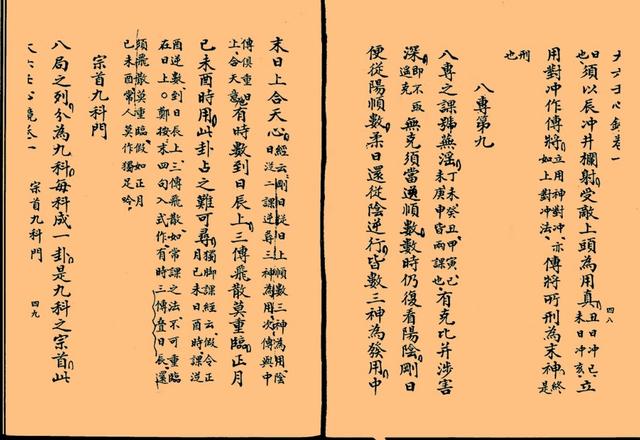 大六壬心鏡卷一
四八
日也須以辰冲井欄射受敵上頭為用真丑日冲巳未日冲亥立
用對冲作傳將立用神對冲亦如上對冲法傳將所刑為末神終是
刑也
八專第九
八專之課號無淫丁未癸丑甲寅己未庚申皆兩課也有克比井涉害
深即不取遥克無克須當逆順數數時仍復看陽陰剛日
便從陽順數柔日還從陰逆行皆數三神為發用中
末日上合天心經云剛日從日上順數三神為用陰日從二課逆尋三神為用次傳與中
傳俱重日上合天意有時數到日辰上三傳飛散莫重臨正月
己未酉時用此卦占之難可尋獨脚課經云假令正月己未日酉時課逆
酉逆數到日辰上三傳飛散如常課之法不可重臨
在日上○鄭按末四句入式作有時三傳疊日辰還
須飛散莫重臨假如正月
己未酉常人莫作獨足吟
宗首九科門
八局之列分為九科每科成一卦是九科之宗首此
大六壬心鏡卷一
宗首九科門
四九